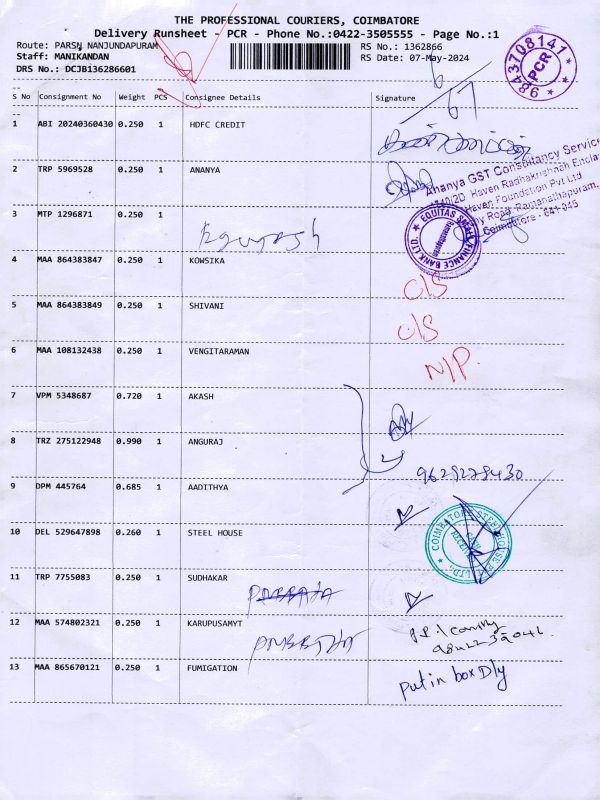 THE PROFESSIONAL COURIERS, COIMBATORE
Delivery Runsheet - PCR - Phone No.:0422-3505555 - Page No.:1
Route: PARSN NANJUNDAPURAM
RS No.: 1362866
Staff: MANIKANDAN
RS Date: 07-May-2024
DRS No.: DCJB136286601
9843708141
PCR
S No Consignment No Weight PCS Consignee Details Signature
1 ABI 20240360430 0.250 1 HDFC CREDIT
2 TRP 5969528 0.250 1 ANANYA
Ananya GST Consultancy Service
Haven Radhakrishnah Encla
Haven Foundation Pvt Ltd
Road, Ramanathapuram,
Coimbatore - 641 045
3 MTP 1296871 0.250 1
EQUITAS SMALL FINANCE BANK LTD.
4 MAA 864383847 0.250 1 KOWSIKA O/S
5 MAA 864383849 0.250 1 SHIVANI O/S
6 MAA 108132438 0.250 1 VENGITARAMAN N/P.
7 VPM 5348687 0.720 1 AKASH
8 TRZ 275122948 0.990 1 ANGURAJ
9629278430
9 DPM 445764 0.685 1 AADITHYA
10 DEL 529647898 0.260 1 STEEL HOUSE
COIMBATORE STEEL HOUSE PVT LTD.
11 TRP 7755083 0.250 1 SUDHAKAR
12 MAA 574802321 0.250 1 KARUPUSAMYT
13 MAA 865670121 0.250 1 FUMIGATION
Put in box Dly